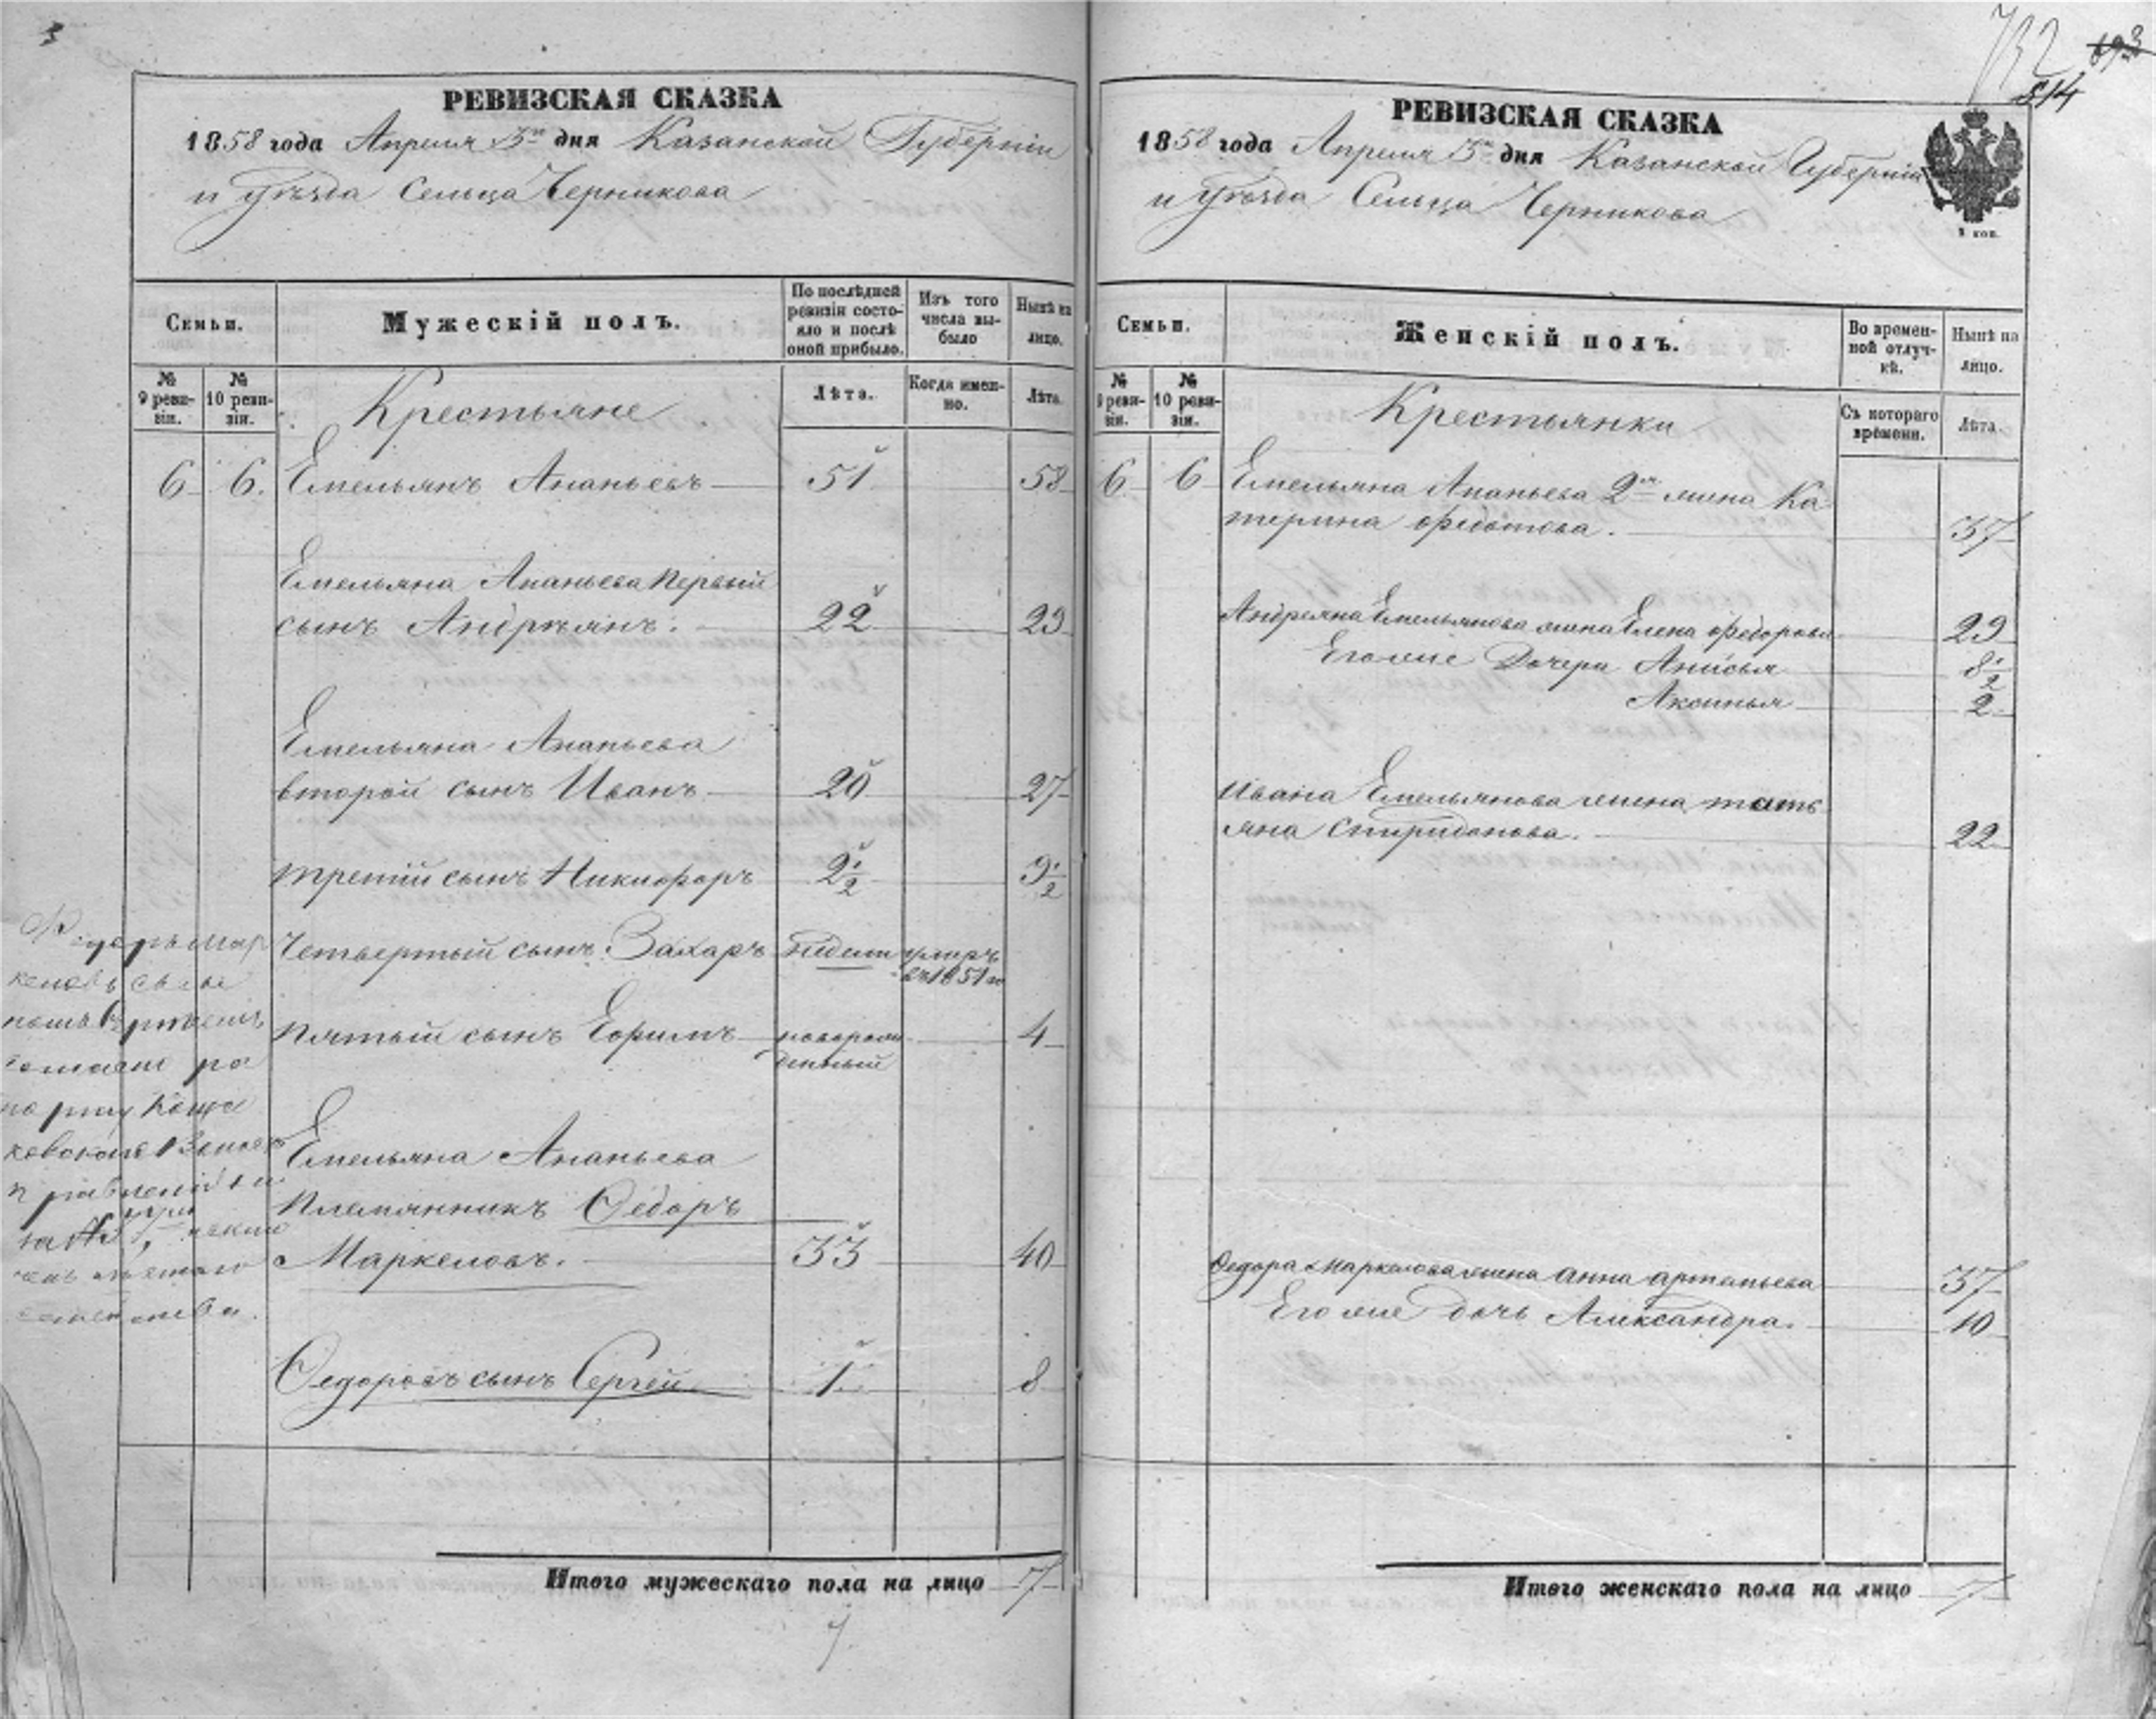 РЕВИЗСКАЯ СКАЗКА
1858 года Апреля 5го дня Казанской Губерніи
и уѣзда Сельца Черникова
Семьи.
Мужескій полъ.
По послѣдней ревизіи состояло и послѣ оной прибыло.
Изъ того числа выбыло
Нынѣ на лицо.
№ 9 ревизіи.
№ 10 ревизіи.
Крестьяне
Лѣта.
Когда именно.
Лѣта.
6 6. Емельянъ Ананьевъ 51 58
Емельяна Ананьева первый
сынъ Андреянъ. 22 29
Емельяна Ананьева
второй сынъ Иванъ 20 27
третий сынъ Никифоръ 2½ 9½
Четвертый сынъ Захаръ недели умеръ
въ 1851 го
пятый сынъ Ефимъ новорож 4
денный
Емельяна Ананьева
племянникъ Ѳедоръ
Маркеловъ. 33 40
Ѳедоровъ сынъ Сергей 1 8
Ѳедоръ Мар
келовъ
рапорту
правления
за №
семейства.
Итого мужескаго пола на лицо 7
7.
732
893
514
РЕВИЗСКАЯ СКАЗКА
1858 года Апреля 5го дня Казанской Губерніи
и уѣзда Сельца Черникова
5 коп.
Семьи.
Женскій полъ.
Во временной отлучкѣ.
Нынѣ на лицо.
№ 9 ревизіи.
№ 10 ревизіи.
Крестьянки
Съ котораго времени.
Лѣта.
6 6 Емельяна Ананьева 2я жена Ка
терина Федотова. 37
Андреяна Емельянова жена Елена Федорова 29
Его же Дочери Анисья 8½
Аксинья 2
Ивана Емельянова жена тать
яна Спиридонова. 22
Ѳедора Маркелова жена анна артемьева 37
Его же дочь Александра. 10
Итого женскаго пола на лицо 7